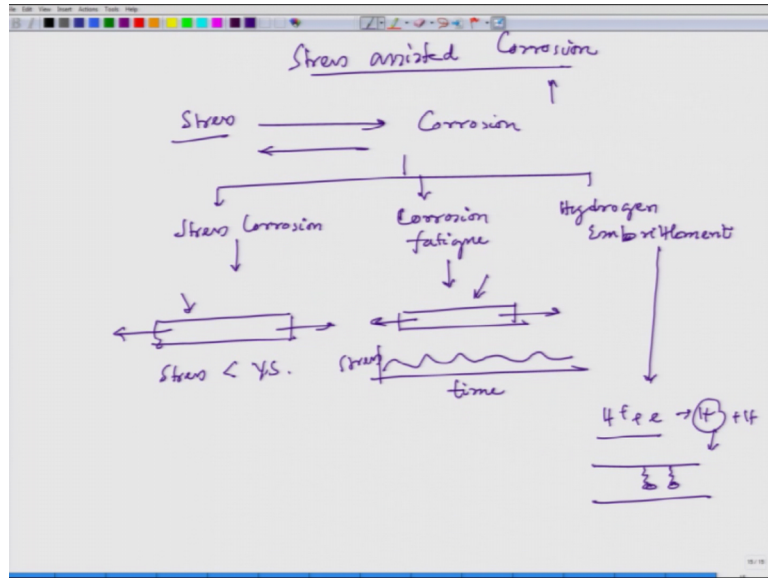 File Edit View Insert Actions Tools Help
Stress assisted Corrosion
Stress → Corrosion
Stress Corrosion
Corrosion fatigue
Hydrogen Embrittlement
Stress < Y.S.
Stress
time
H⁺ + e → H + H